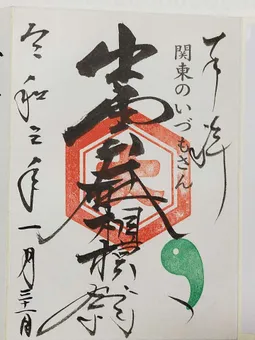 奉拝
関東のいづもさん
出雲大社相模分祠
令和三年一月三十一日